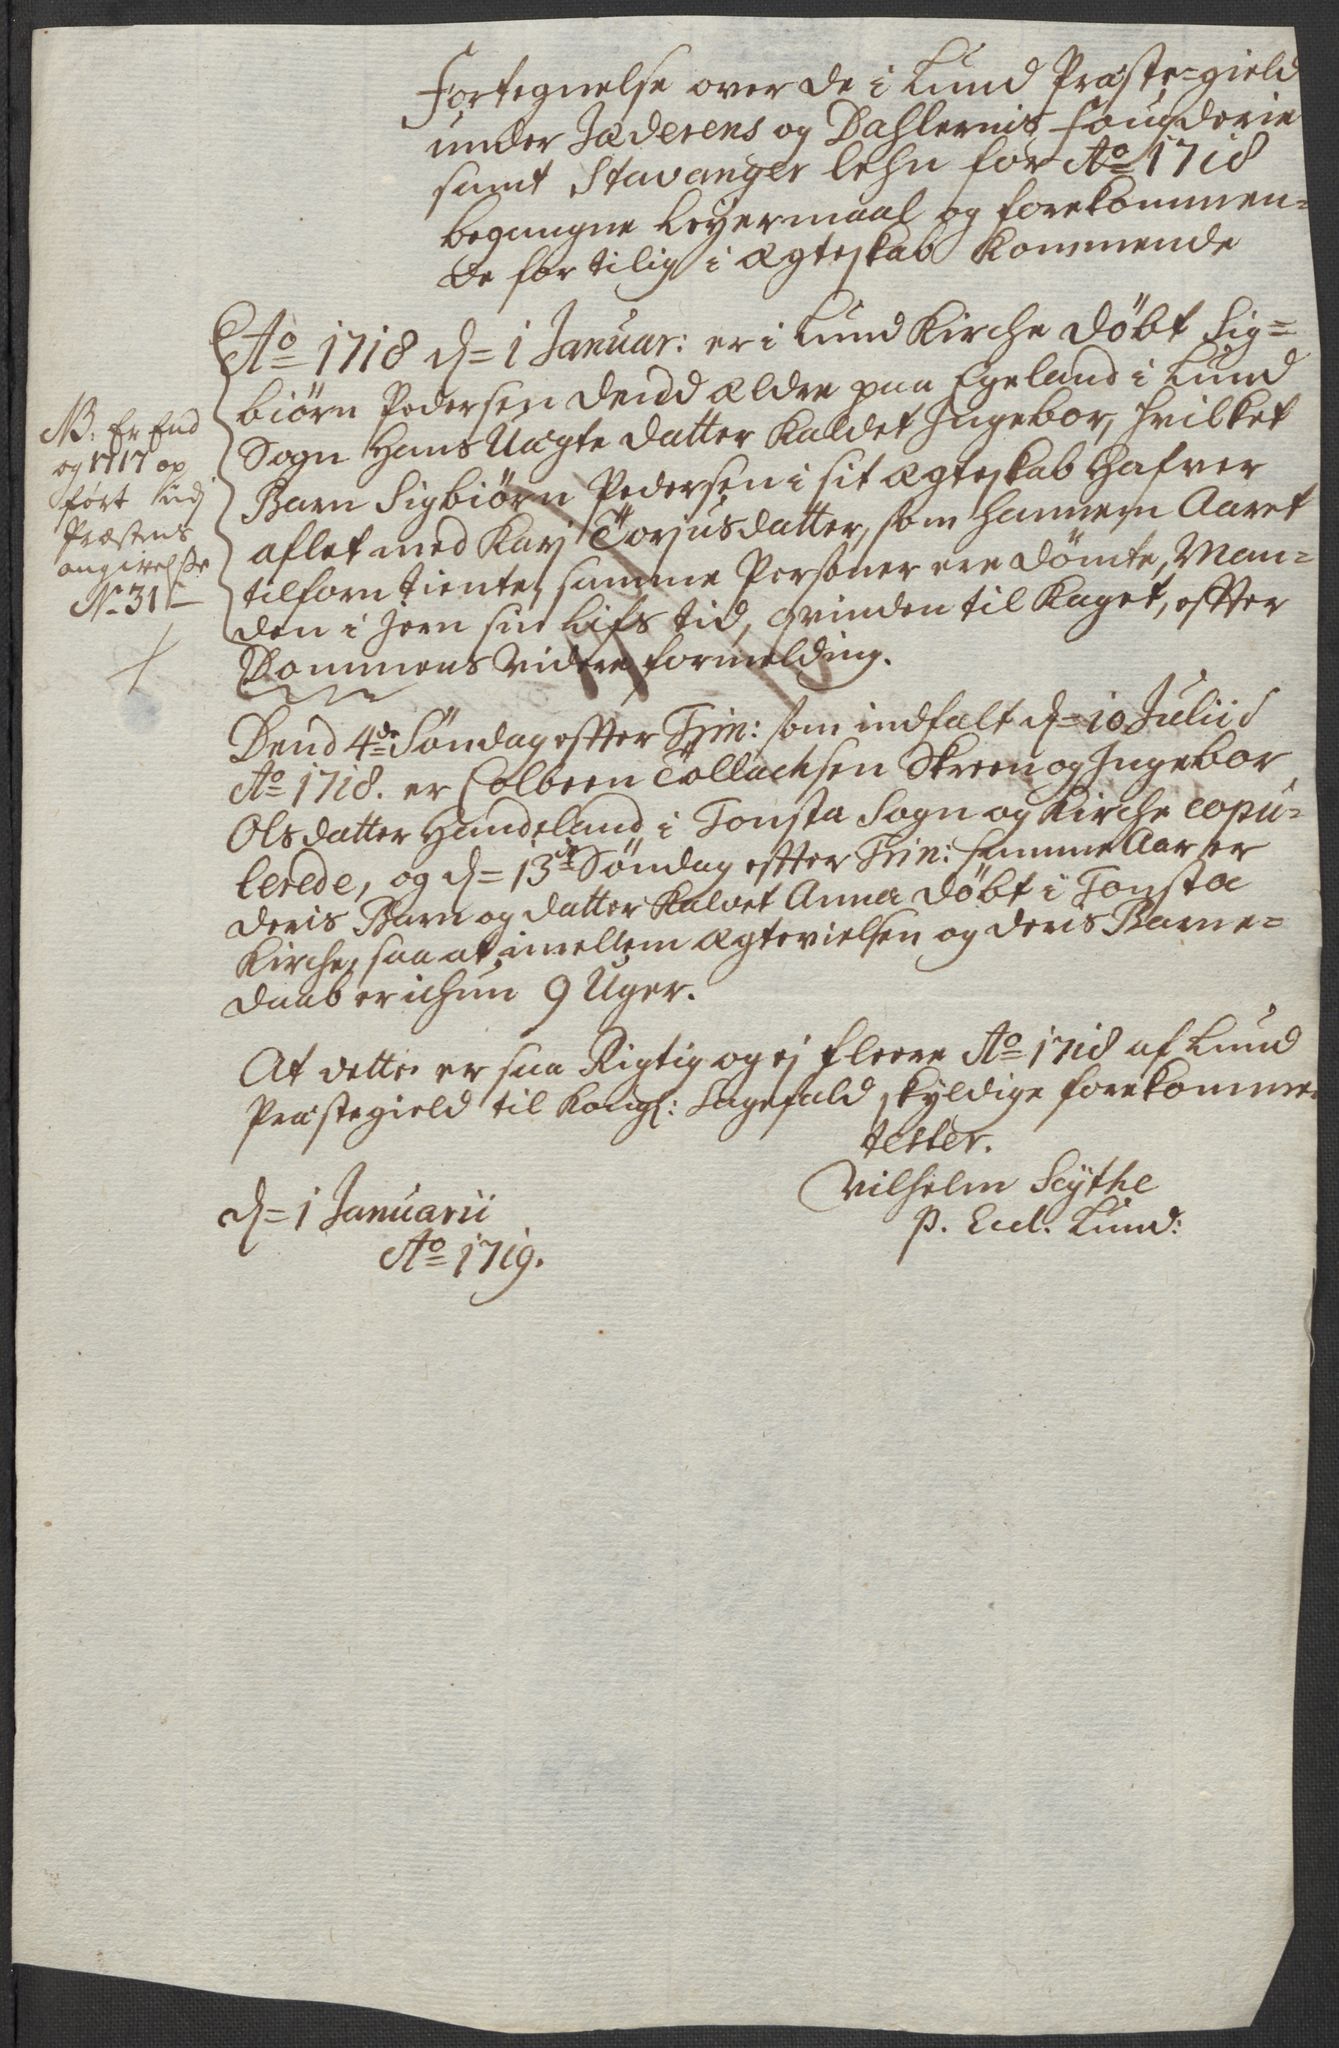 Fortegnelse over de i Lund Præste-gield
under Jæderens og Dahlernis Fougderie
samt Stavanger lehn for Ao 1718
begangne Leyermaal og forekommen-
de for tilig i ægteskab kommende
Ao 1718 d= 1 Januar: er i Lund Kirche döbt Sig-
biörn Pedersen dend ældre paa Egeland i Lund
Sogn Hans Uægte datter kaldet Ingebor, hvilket
Barn Sigbiörn Pedersen i sit ægteskab hafver
aflet med Karj Torjusdatter, som hannem Aaret
tilforn tiente, samme Personer ere dömte, Man-
den i Jern sin Lifs tid, qvinden til Kaget, effter
Dommens videre formelding.
NB: Er End
og 1717 op
fört udj
Præstens
angivelse
No 31
Dend 4de Söndag effter Trin: som indfalt d= 10 Julii
Ao 1718. er Colbeen Tollachsen Skreen og Ingebor
Olsdatter Handeland i Tonsta Sogn og Kirche copu-
lerede, og d= 13de Söndag effter Trin: samme Aar er
deris Barn og datter kaldet Anna döbt i Tonsta
Kirche, saa at imellem ægtevielsen og deris Barne-
daab er ichun 9 Uger.
At dette er saa Rigtig og ej fleere Ao 1718 af Lund
Præstegield til Kongl: Sagefald skyldige forekommer
tester.
Vilhelm Scythe
P. Eccl. Lund:
d= 1 Januarii
Ao 1719.